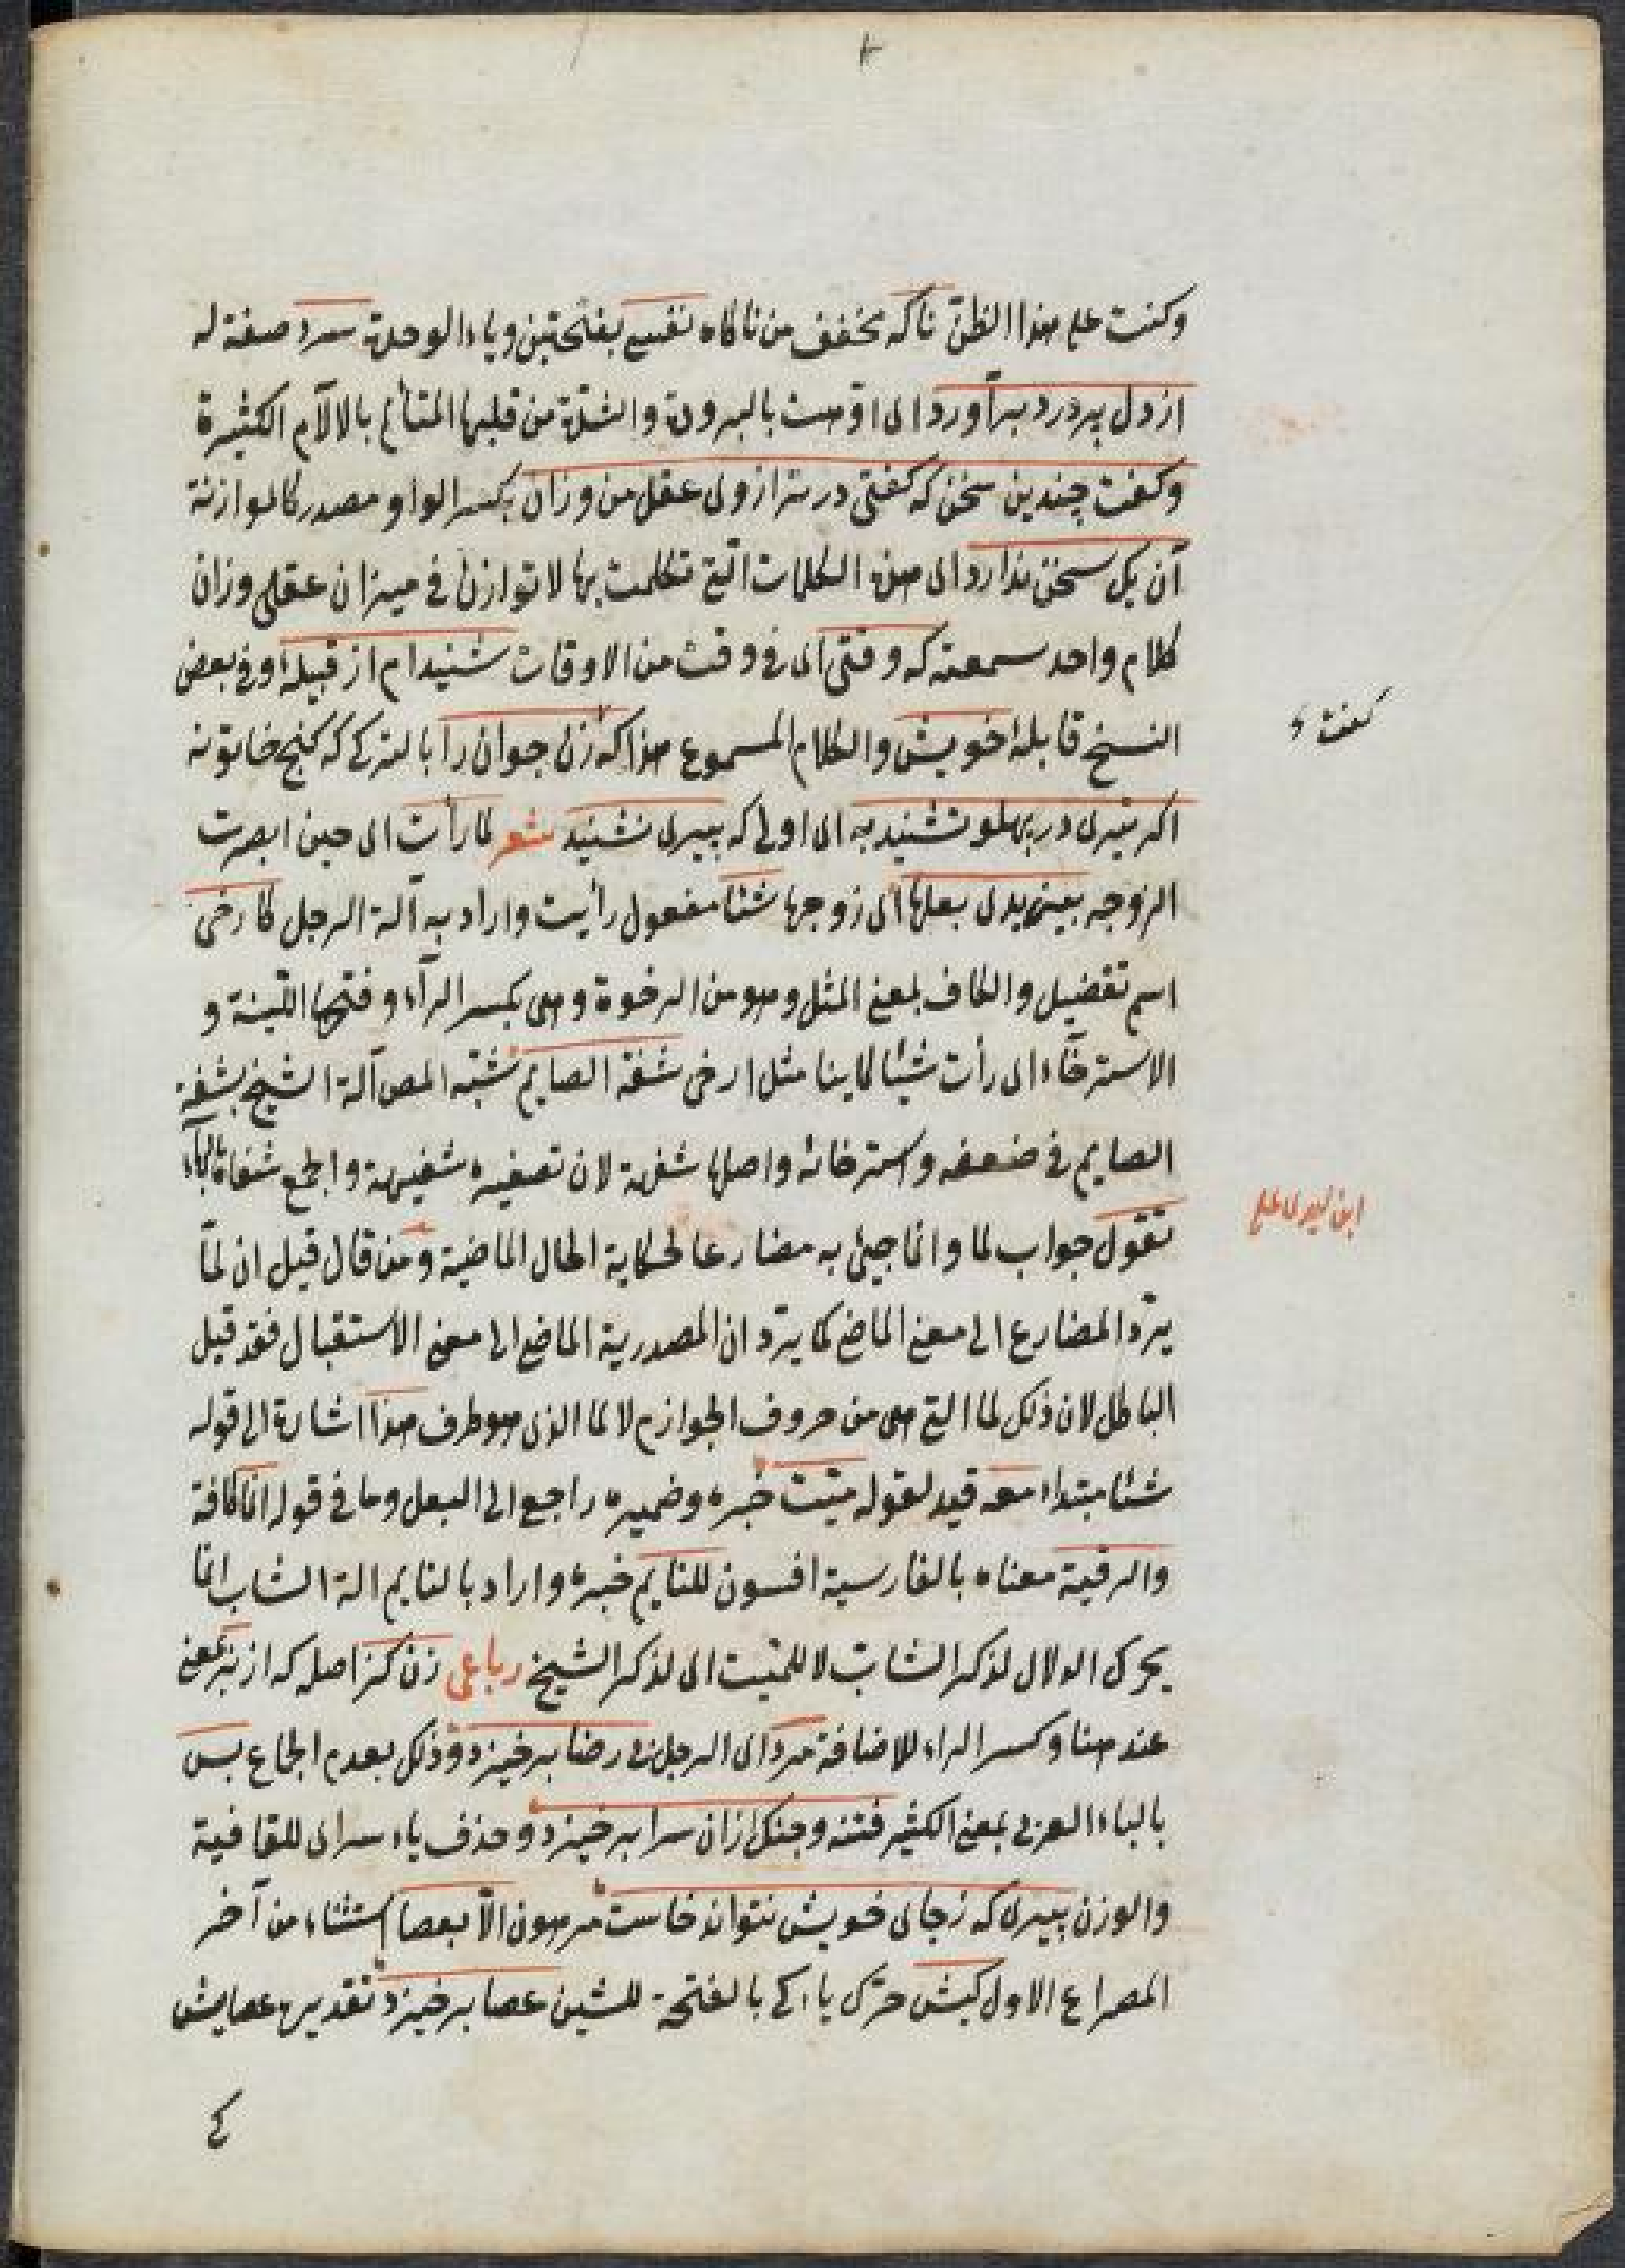 وكنت على هذا الظن ناكه مخفف من ناكاه نفسى بفتحتين وياء الوحدة سرد صفة له
از دل پر درد برآورد اى اوّهت بالبرودة والشدّة من قلبها المتألم بالآلام الكثيرة
وكفت چندين سخن كه كفتى در ترازوى عقل من وزان بكسر الواو مصدر كالموازنة
آن يك سخن ندارد اى هذه الكلمات التى تكلمت بها لا توازن فى ميزان عقلى وزان
كلام واحد سمعته كه وقتى اى فى وقت من الاوقات شنيدام از قبيلهٔ وفى بعض
النسخ قابلهٔ خويش والكلام المسموع هذا كه زن جوان را بالتركى كنج خاتونه
اكر تيرى در پهلو نشيند به اى اولى كه پيرى نشيند شعر لما رأت اى حين ابصرت
الزوجه بين يدى بعلها اى زوجها شئا مفعول رأيت واراد به آلة الرجل كارخى
اسم تفضيل والكاف بمعنى المثل وهو من الرخوة وهى بكسر الراء وفتحها اللينة و
الاسترخاء اى رأت شيئا كاينا مثل ارخى شفة الصايم شبّه المص آلة الشيخ بشفة
الصايم فى ضعفه واسترخائه واصلها شفهة لان تصغيره شفيهة والجمع شفاه بالهاء
تقول جواب لما وانما جيئ به مضارعا لحكاية الحال الماضية ومن قال قيل ان لمّا
يردّ المضارع الى معنى الماضى كما يردّ ان المصدرية الماضى الى معنى الاستقبال فقد قيل
الباطل لان ذلك لما التى هى من حروف الجوازم لا لما الذى هو ظرف هذا اشارة الى قوله
شئا مبتداء معه قيد لقوله ميّت خبره وضميره راجع الى البعل وما فى قوله انما كافة
والرقية معناه بالفارسية افسون للنايم خبره واراد بالنايم الة الشاب انما
يحرك الدلال لذكر الشابّ لا للميّت اى لذكر الشيخ رباعى زن كز اصله كه از بر بمعنى
عند هنا وكسر الراء للاضافة مرد اى الرجل بى رضا برخيزد وذلك بعدم الجماع بس
بالباء العربى بمعنى الكثير فتنه وجنك ازان سرا برخيزد وحذف ياء سراى للقافية
والوزن پيرى كه زجاى خويش نتواند خاست مرهون الّا بعصا استثناء من آخر
المصراع الاول كيش حرّك ياء كى بالفتحة للشين عصا برخيزد تقديره عصايش
كى
كفت و